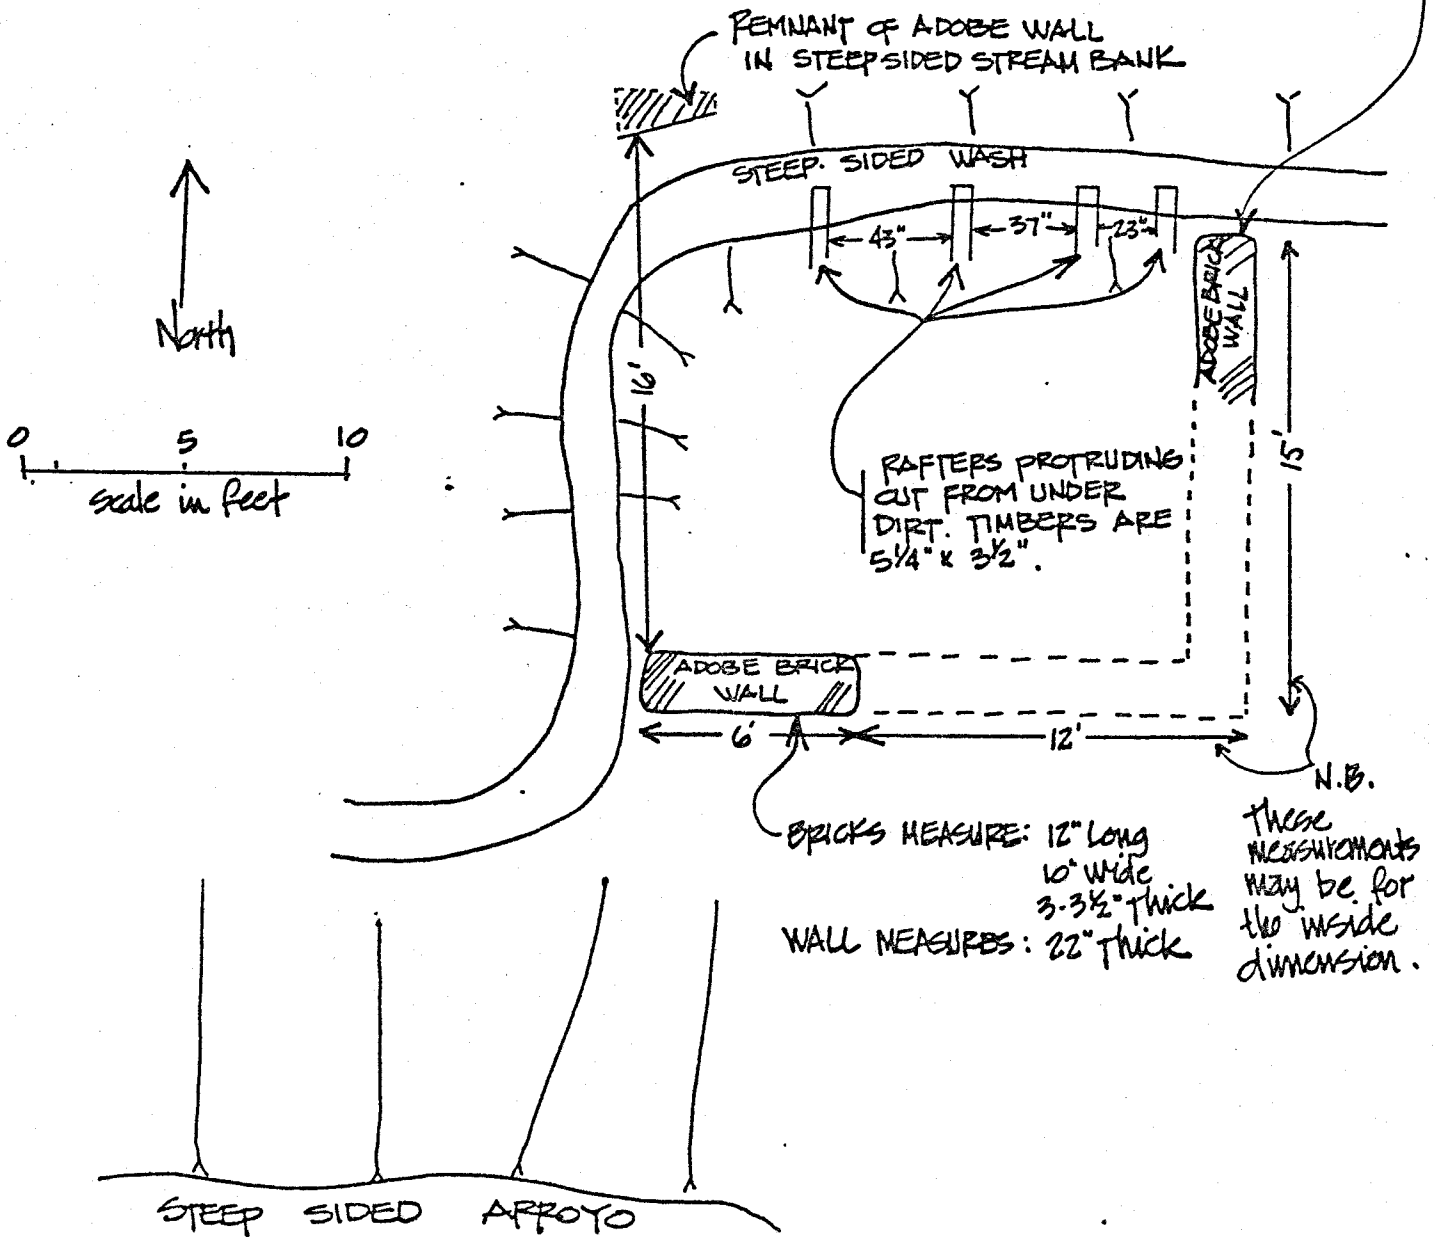 REMNANT OF ADOBE WALL
IN STEEP SIDED STREAM BANK
STEEP. SIDED WASH
43"
37"
23"
ADOBE BRICK
WALL
North
16'
15'
0 5 10
scale in feet
RAFTERS PROTRUDING
OUT FROM UNDER
DIRT. TIMBERS ARE
5 1/4" x 3 1/2".
ADOBE BRICK
WALL
6'
12'
N.B.
These
measurements
may be for
the inside
dimension.
BRICKS MEASURE: 12" Long
10" Wide
3-3 1/2" Thick
WALL MEASURES: 22" Thick
STEEP SIDED ARROYO